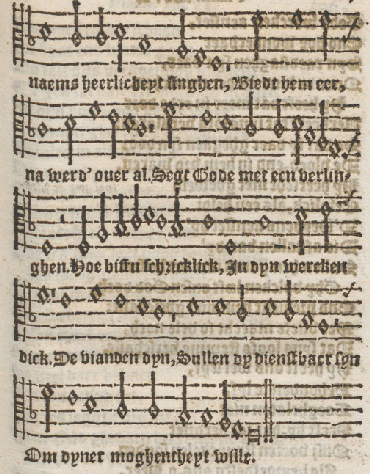 naems heerlicheyt singhen, Biedt hem eer,
na werd' ouer al. Segt Gode met een verlin-
ghen. Hoe bistu schricklick, In dyn wercken
dick. De vianden dyn, Sullen dy dienstbaer syn
Om dyner moghentheyt wille.